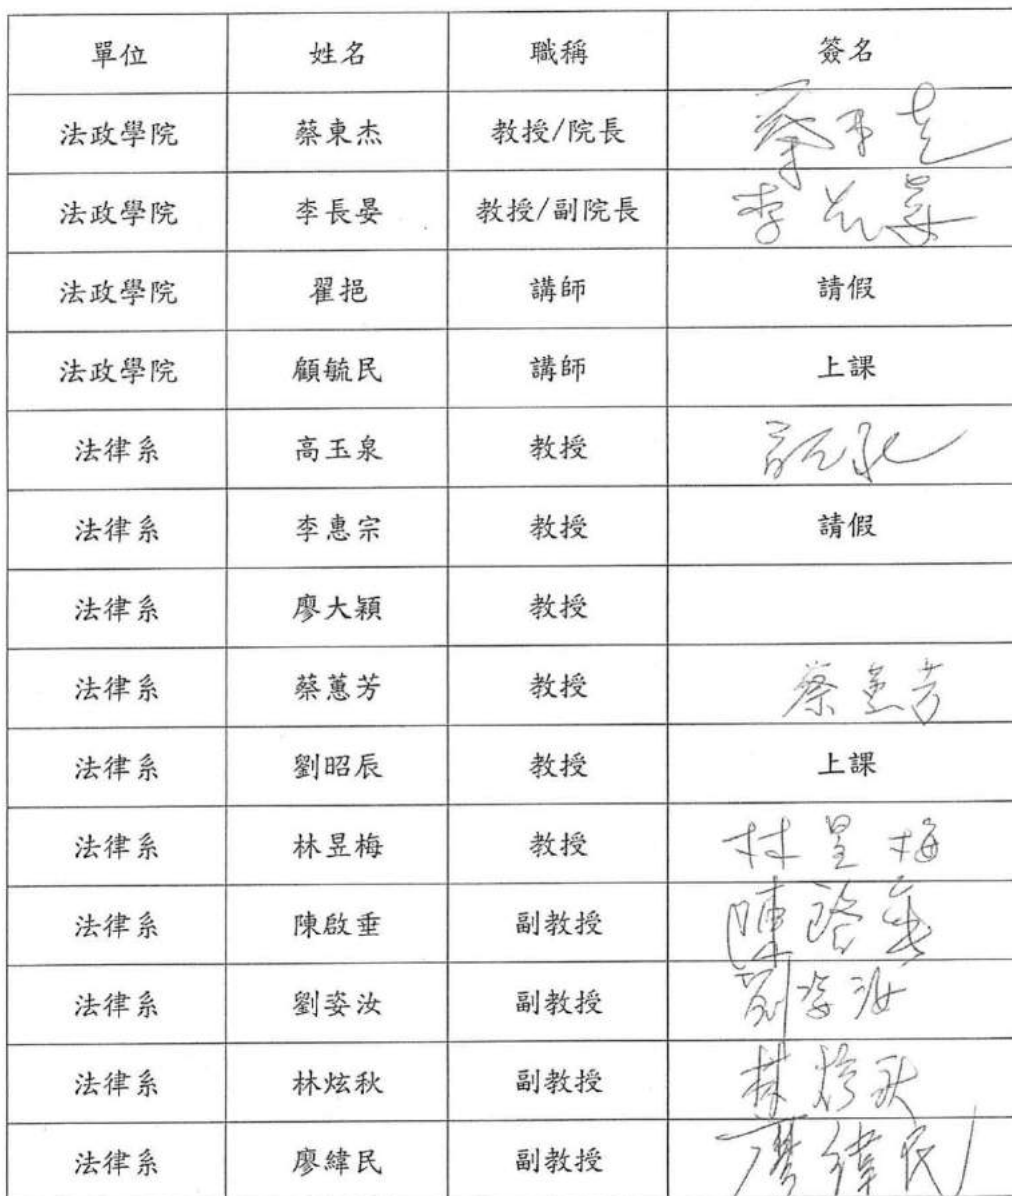 單位 姓名 職稱 簽名
法政學院 蔡東杰 教授/院長
法政學院 李長晏 教授/副院長
法政學院 翟挹 講師 請假
法政學院 顧毓民 講師 上課
法律系 高玉泉 教授
法律系 李惠宗 教授 請假
法律系 廖大穎 教授
法律系 蔡蕙芳 教授 蔡蕙芳
法律系 劉昭辰 教授 上課
法律系 林昱梅 教授 林昱梅
法律系 陳啟垂 副教授 陳啓垂
法律系 劉姿汝 副教授 劉姿汝
法律系 林炫秋 副教授 林炫秋
法律系 廖緯民 副教授 廖緯民